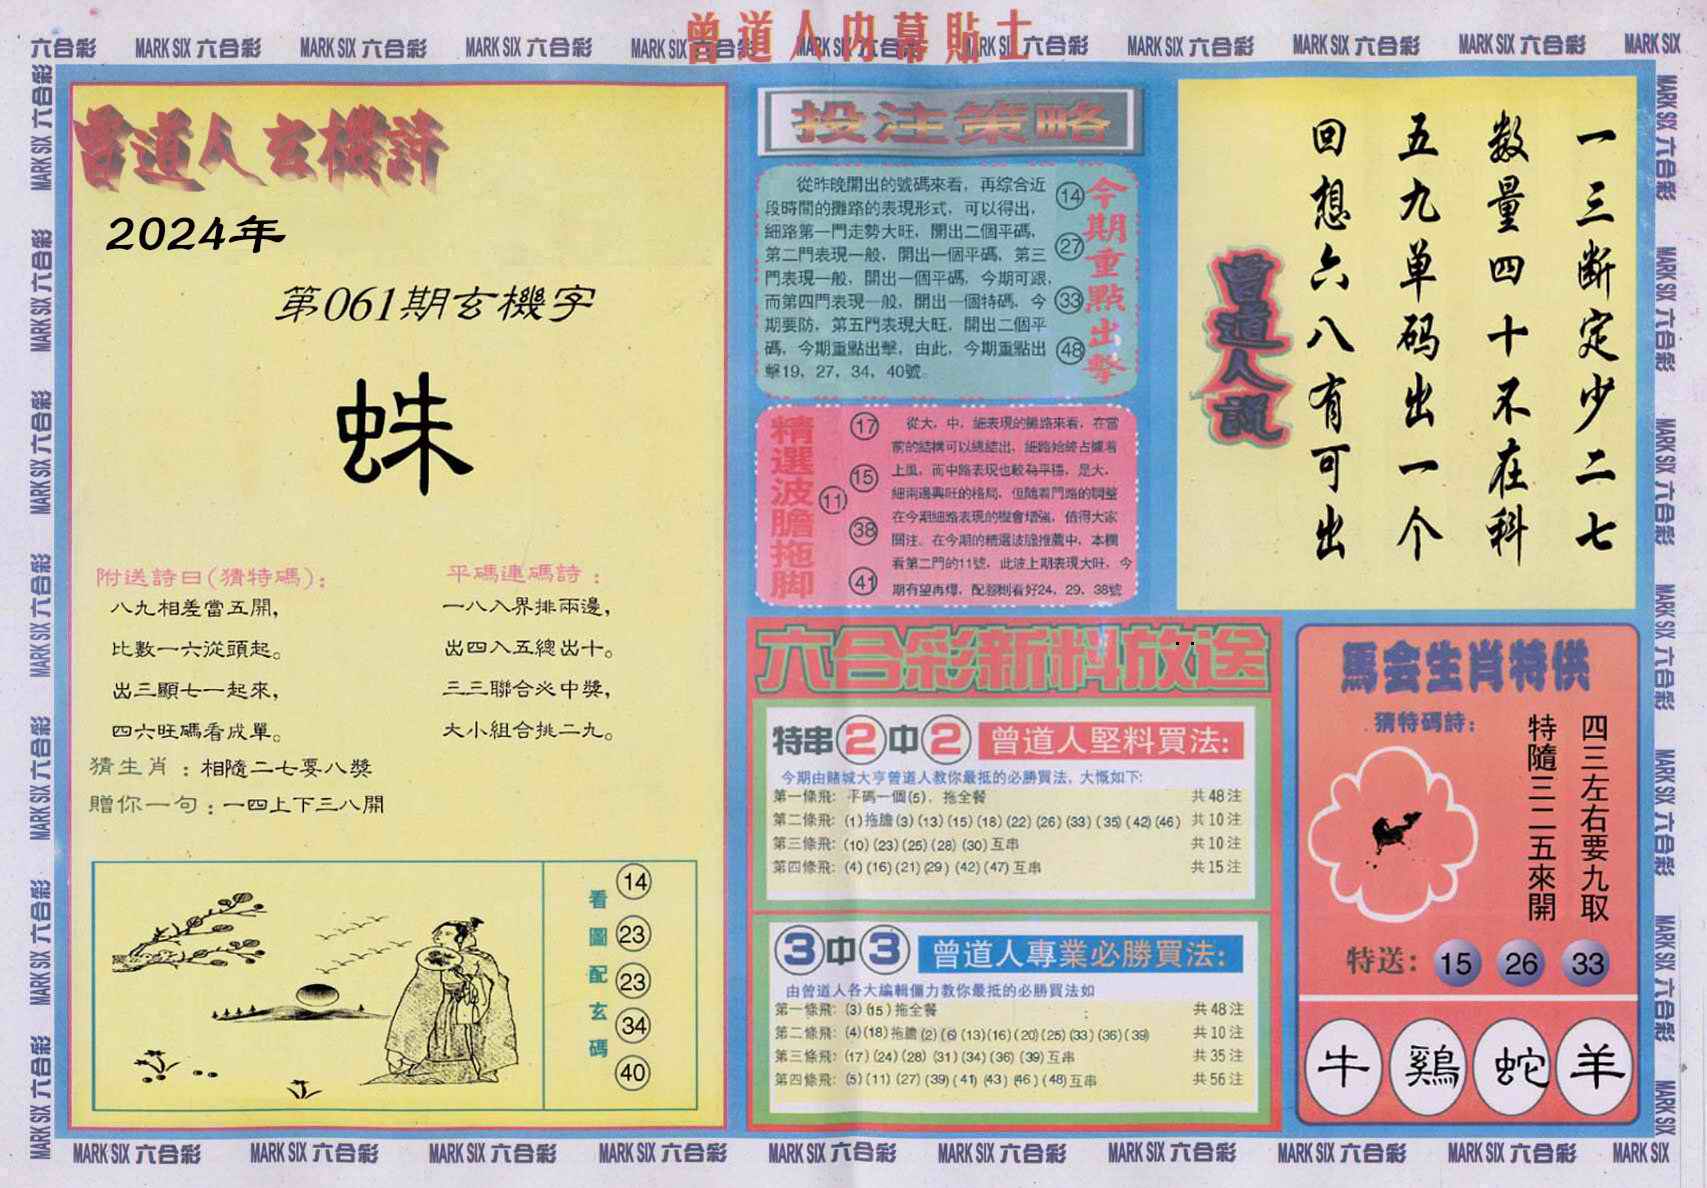 曾道人内幕貼士
六合彩 MARK SIX 六合彩 MARK SIX 六合彩 MARK SIX 六合彩 MARK SIX 六合彩 MARK SIX 六合彩 MARK SIX 六合彩 MARK SIX 六合彩 MARK SIX 六合彩 MARK SIX 六合彩 MARK SIX
曾道人玄機詩
2024年
第061期玄機字
蛛
附送詩曰(猜特碼):
八九相差當五開,
比數一六從頭起。
出三顯七一起來,
四六旺碼看成單。
平碼連碼詩:
一八入界排兩邊,
出四入五總出十。
三三聯合必中獎,
大小組合挑二九。
猜生肖:相隨二七要八獎
贈你一句:一四上下三八開
看圖配玄碼
14
23
23
34
40
投注策略
從昨晚開出的號碼來看，再綜合近
段時間的攤路的表現形式，可以得出，
細路第一門走勢大旺，開出二個平碼，
第二門表現一般，開出一個平碼，第三
門表現一般，開出一個平碼，今期可跟，
而第四門表現一般，開出一個特碼，今
期要防，第五門表現大旺，開出二個平
碼，今期重點出擊，由此，今期重點出
擊19，27，34，40號。
14
27
33
48
今期重點出擊
精選波膽拖脚
17
15
11
38
41
從大，中，細表現的攤路來看，在當
前的結構可以總結出，細路始終占據着
上風，而中路表現也較為平穩，是大，
細兩邊興旺的格局，但隨着門路的調整
在今期細路表現的機會增強，值得大家
關注。在今期的精選波膽推薦中，本欄
看第二門的11號，此波上期表現大旺，今
期有望再爆，配腳則看好24，29，38號
一三断定少二七
数量四十不在科
五九单码出一个
回想六八有可出
曾道人説
六合彩新料放送
特串2中2 曾道人堅料買法:
今期由賭城大亨曾道人教你最抵的必勝買法，大慨如下:
第一條飛: 平碼一個(5)，拖全餐 共48注
第二條飛: (1)拖膽(3)(13)(15)(18)(22)(26)(33)(35)(42)(46) 共10注
第三條飛: (10)(23)(25)(28)(30)互串 共10注
第四條飛: (4)(16)(21)(29)(42)(47)互串 共15注
3中3 曾道人專業必勝買法:
由曾道人各大編輯傾力教你最抵的必勝買法如
第一條飛: (3)(15)拖全餐 共48注
第二條飛: (4)(18)拖膽(2)(6)(13)(16)(20)(25)(33)(36)(39) 共10注
第三條飛: (17)(24)(28)(31)(34)(36)(39)互串 共35注
第四條飛: (5)(11)(27)(39)(41)(43)(46)(48)互串 共56注
馬会生肖特供
猜特碼詩:
四三左右要九取
特隨三二五來開
特送: 15 26 33
牛 鷄 蛇 羊
MARK SIX 六合彩 MARK SIX 六合彩 MARK SIX 六合彩 MARK SIX 六合彩 MARK SIX 六合彩 MARK SIX 六合彩 MARK SIX 六合彩 MARK SIX 六合彩 MARK SIX 六合彩 MARK SIX